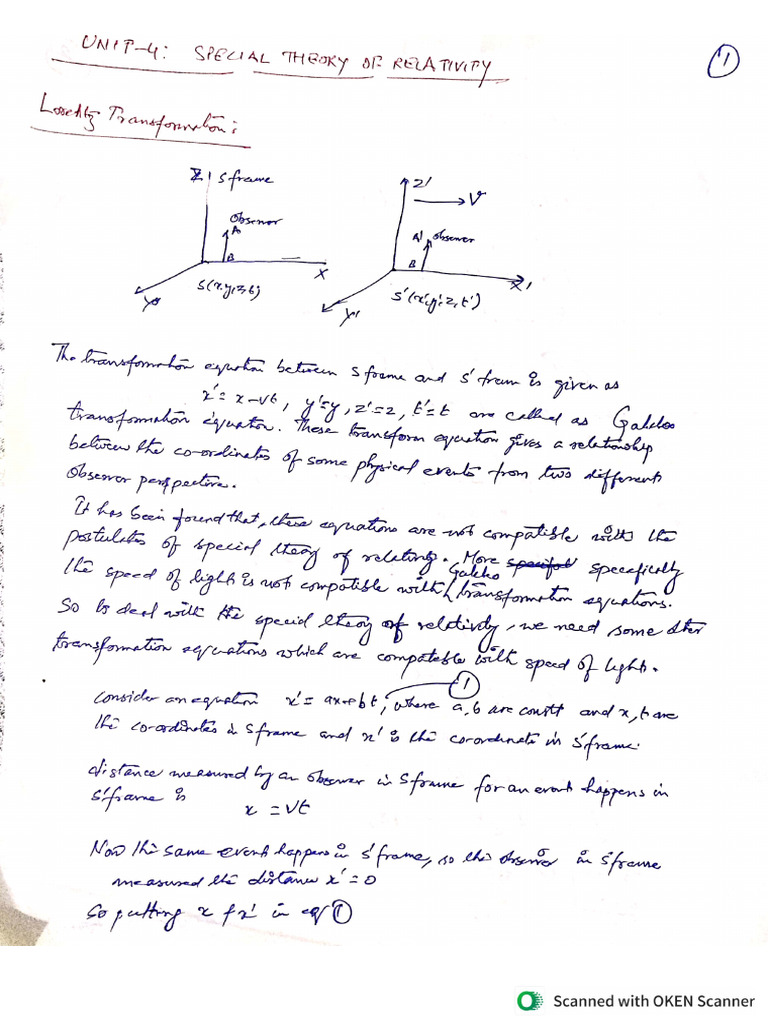 UNIT-4: SPECIAL THEORY OF RELATIVITY
1
Lorentz Transformation:
Z S frame
Z'
V
Observor
A
A' observer
B
B
X
X'
S(x,y,z,t)
S'(x',y',z,t')
Y
Y'
The transformation equation between S frame and S' fram is given as
x' = x-vt, y'=y, z'=z, t'=t are called as Galileo
transformation equation. These transform equation gives a relationship
between the co-ordinates of some physical events from two different
observer perspective.
It has been found that, these equations are not compatible with the
postulates of special theory of relativity. More specifically
the speed of light is not compatible with Galileo transformation equations.
So to deal with the special theory of relativity, we need some other
transformation equations which are compatible with speed of light.
Consider an equation x' = ax+bt, 1 where a, b are constt and x, t are
the co-ordinates in S frame and x' is the co-ordinate in S' frame.
distance measured by an observer in S frame for an event happens in
S' frame is
x = vt
Now the same event happens in S' frame, so the observer in S' frame
measured the distance x' = 0
So putting x & x' in eq 1
Scanned with OKEN Scanner